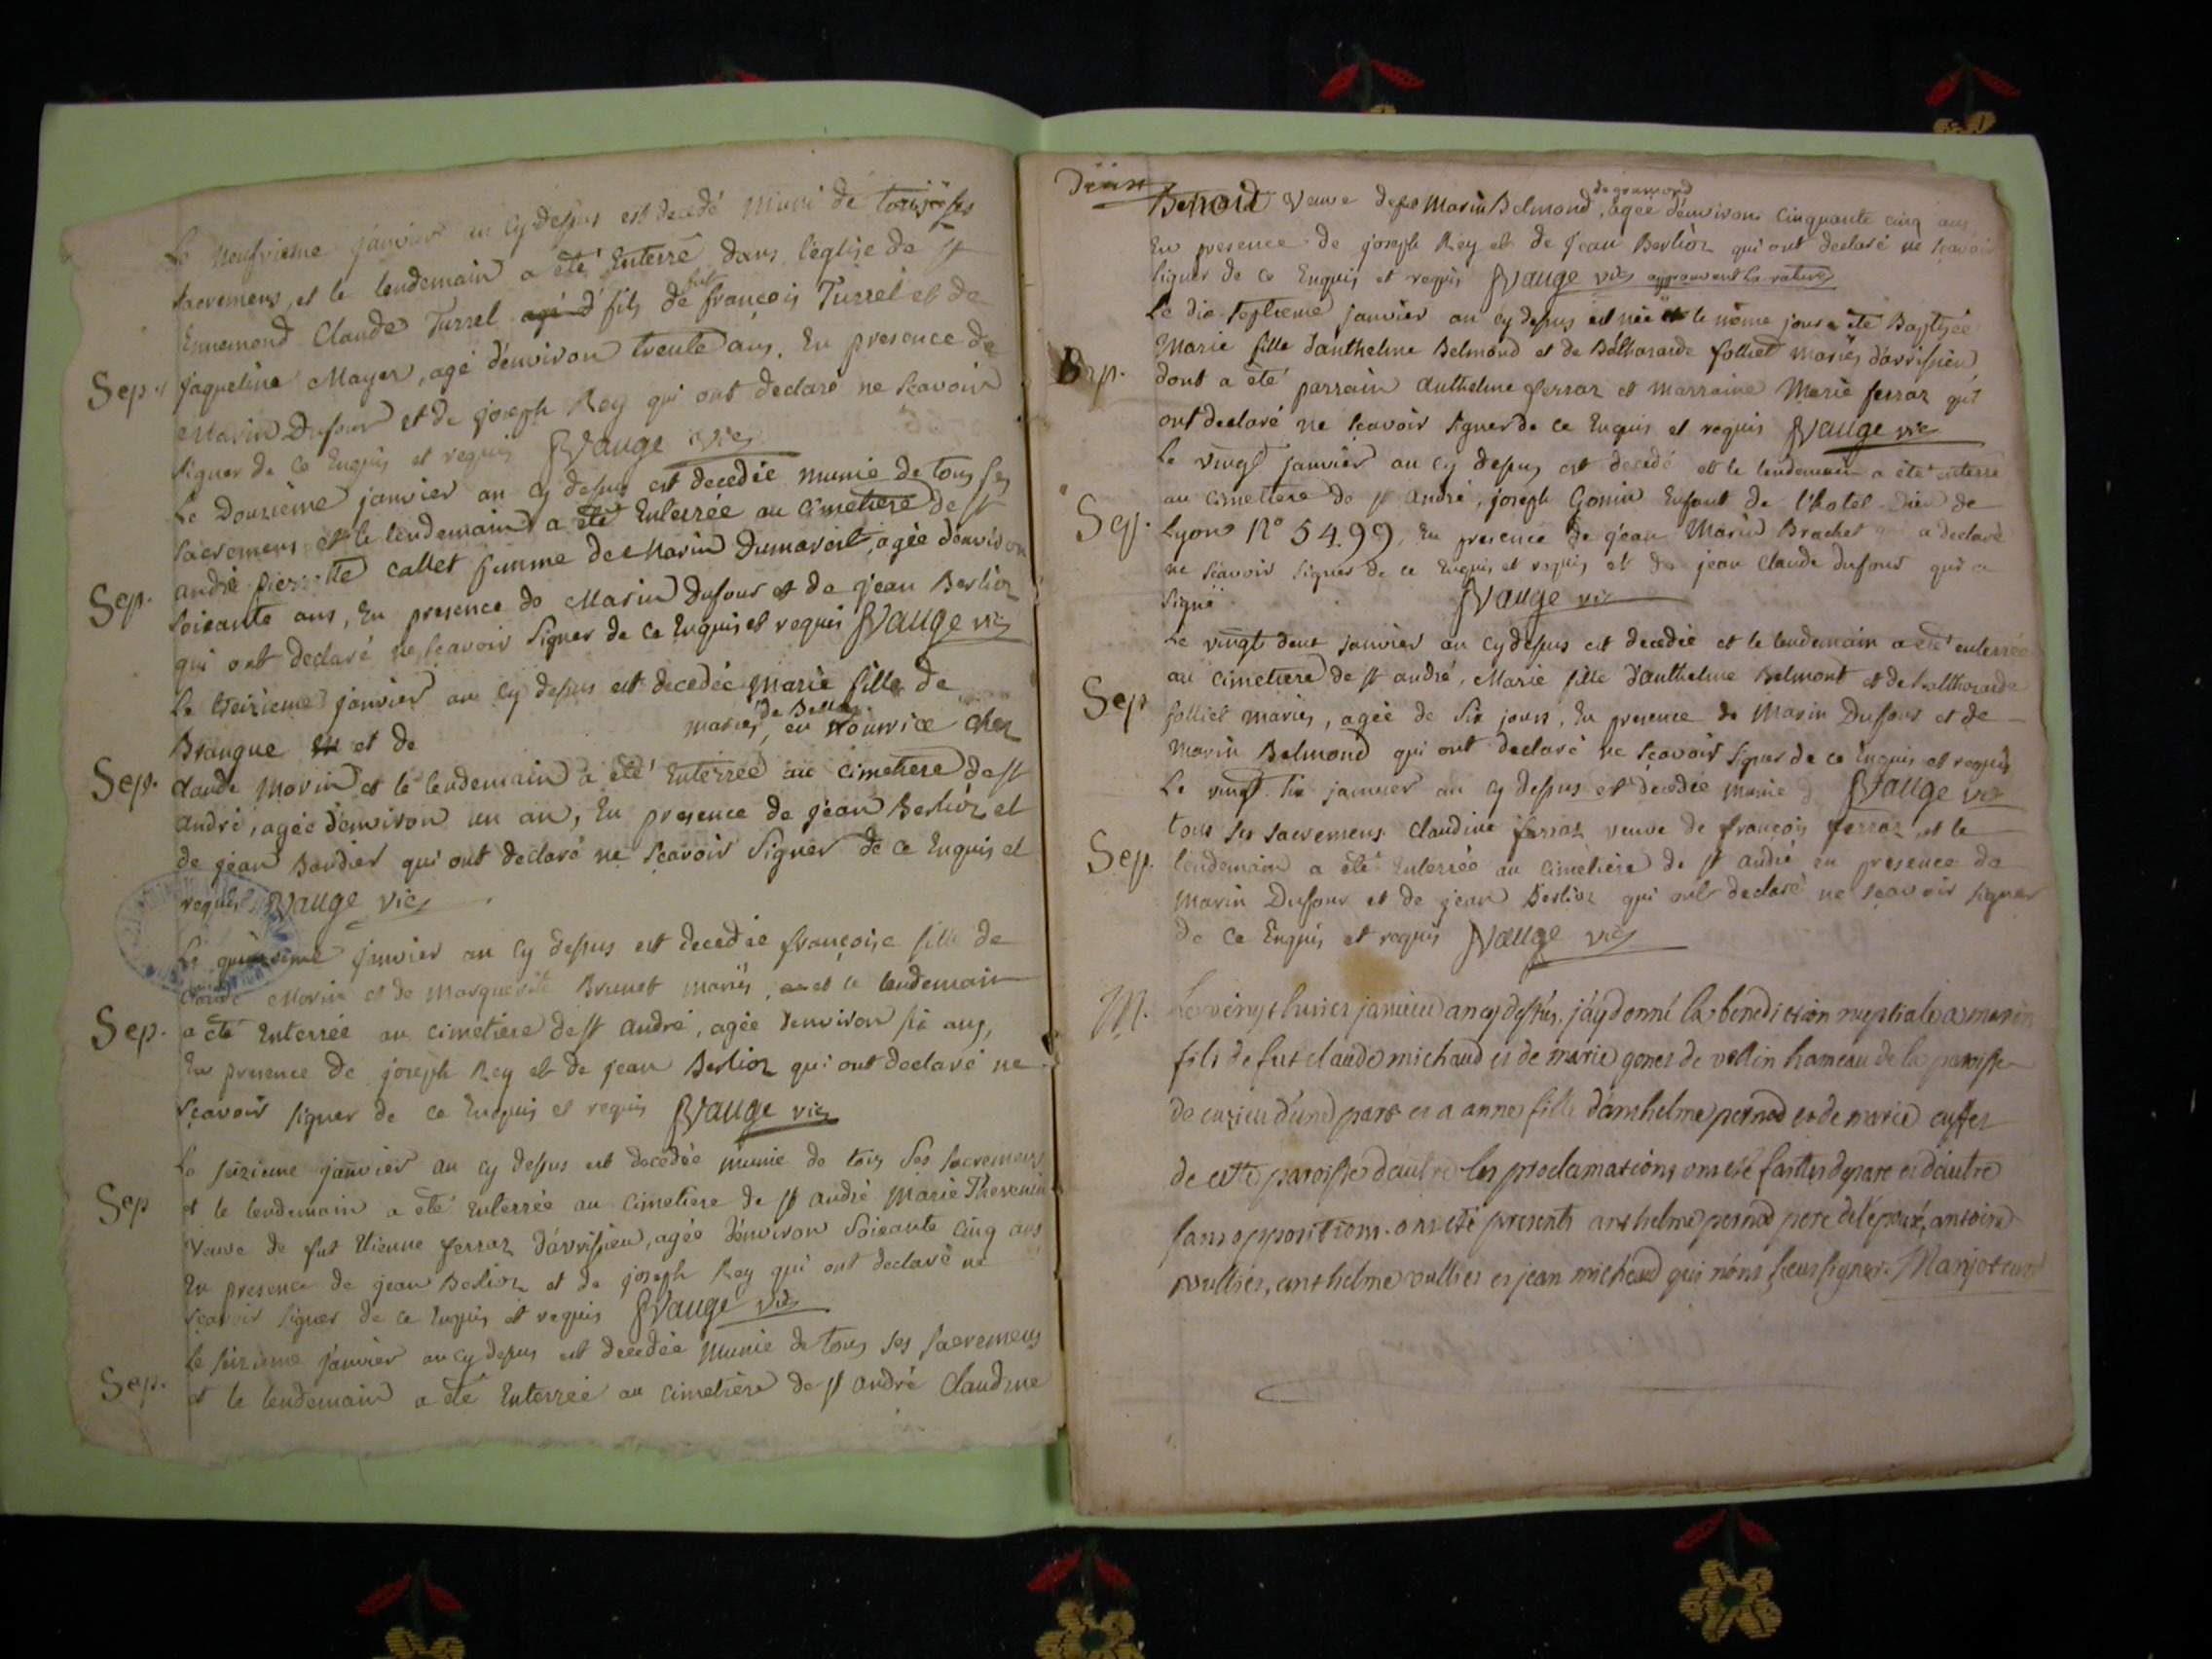 Le Neufvieme janvier au cy dessus est decedé Muni de tous ses
sacremens, et le lendemain a été Enterré dans l'église de st
Ennemond Claude Turrel fils de fut françois Turrel et de
Sep. jaqueline Mayer, agé d'environ trente ans, En presence de
Marin Dufour et de joseph Rey qui ont declaré ne scavoir
signer de ce Enquis et requis JVauge vic
Le Douzieme janvier an cy dessus est decedée munie de tous ses
sacremens et le lendemain a été Enterrée au Cimetiere de st
Sep. andré pierrette callet femme de Marin Dumarest, agée d'environ
soixante ans, En presence de Marin Dufour et de jean Berlioz
qui ont declaré ne scavoir signer de ce Enquis et requis JVauge vic
Le treizieme janvier an cy dessus est decedée Marie fille de
Brangue et de mariés, de Belley en nourrice chez
Sep. claude Morin et le lendemain a été Enterrée au cimetiere de st
andré, agée d'environ un an, En presence de jean Berlioz et
de jean Bordier qui ont declaré ne scavoir signer de ce Enquis et
requis JVauge vic
Le quinzieme janvier an cy dessus est decedée françoise fille de
Claude Morin et de Marguerite Brunet mariés, et le lendemain
Sep. a été Enterrée au cimetiere de st andré, agée d'environ six ans,
En presence de joseph Rey et de jean Berlioz qui ont declaré ne
sçavoir signer de ce Enquis et requis JVauge vic
Le seizieme janvier an cy dessus est decedée munie de tous ses sacremens
Sep et le lendemain a été enterrée au cimetiere de st andré Marie Thevenin
veuve de fut Etienne ferraz d'arvissieu, agée d'environ soixante cinq ans
En presence de jean Berlioz et de joseph Rey qui ont declaré ne
scavoir signer de ce Enquis et requis JVauge vic
Le seizieme janvier an cy dessus est decedée Munie de tous ses sacremens
Sep. et le lendemain a été Enterrée au cimetière de st andré Claudine
Benoit veuve de feu Marin Belmond, de gramond agée d'environ cinquante cinq ans
En presence de joseph Rey et de jean Berlioz qui ont declaré ne scavoir
signer de ce Enquis et requis JVauge vic approuvant la rature
Le dix-septieme janvier an cy dessus est née et le même jour a été Baptisée
Marie fille d'anthelme Belmond et de Balthazarde folliet mariés d'arvissieu,
Bap. dont a été parrain anthelme ferraz et marraine Marie ferraz qui
ont declaré ne scavoir signer de ce Enquis et requis JVauge vic
Le vingt janvier an cy dessus est decedé et le lendemain a été enterré
au cimettere de st andré, joseph Gonin Enfant de l'hotel-Dieu de
Sep. Lyon N° 5499, En presence de jean Marin Brachet qui a declaré
ne scavoir signer de ce Enquis et requis et de jean claude dufour qui a
signé JVauge vic
Le vingt deux janvier an cy dessus est decedée et le lendemain a été enterrée
au cimetiere de st andré, Marie fille d'anthelme Belmont et de balthazarde
Sep folliet mariés, agée de six jours, En presence de Marin Dufour et de
Marin Belmond qui ont declaré ne scavoir signer de ce Enquis et requis
Le vingt six janvier an cy dessus est decedée munie de JVauge vic
tous ses sacremens Claudine ferraz veuve de françois ferraz et le
Sep. lendemain a été Enterrée au cimetiere de st andré en presence de
Marin Dufour et de jean Berlioz qui ont declaré ne sçavoir signer
de ce Enquis et requis JVauge vic
M. Le vingt huiet janvier an cy dessus, j'ay donné la benediction nuptiale a marin
fils de fut claude michaud et de marie gonet de vollin hameau de la paroisse
de cuzieu d'une part et a anne fille d'anthelme pernod et de marie cuffet
de cette paroisse d'autre les proclamations ont été faittes de part et d'autre
sans oppositions. ont été presents anthelme pernod pere de l'épouse, antoine
vullier, anthelme vullier et jean michaud qui n'ont sceu signer. Marjot curé